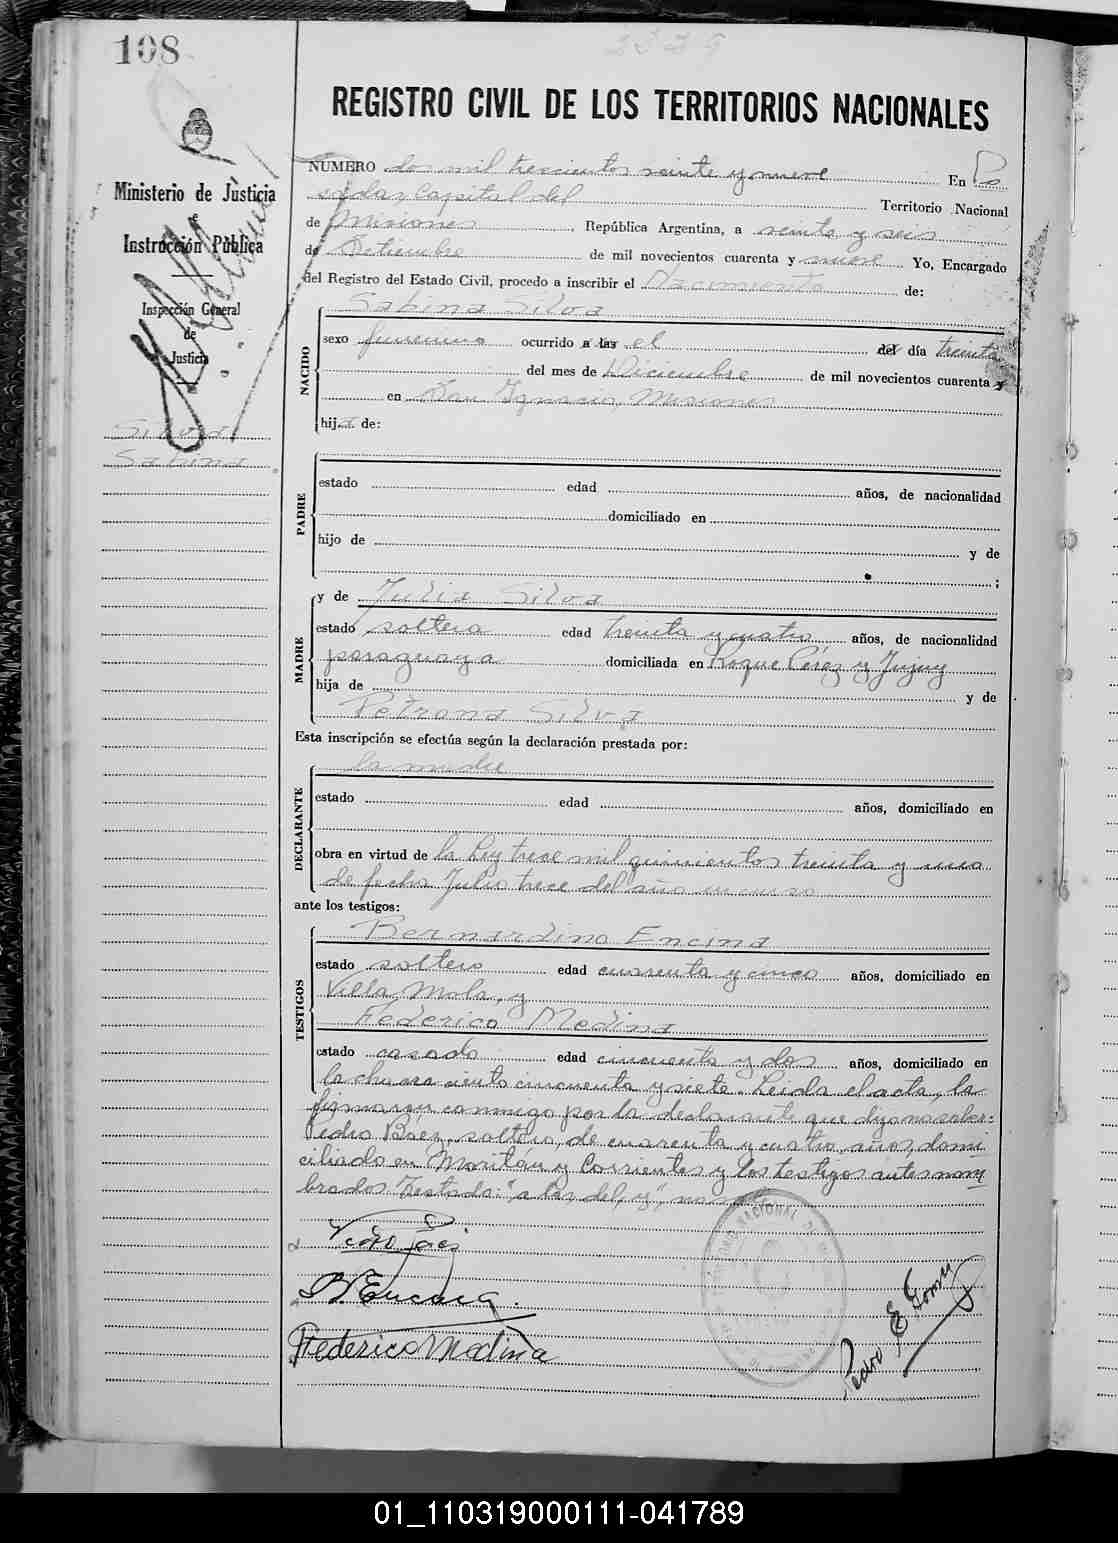 108
REGISTRO CIVIL DE LOS TERRITORIOS NACIONALES
Ministerio de Justicia
e
Instrucción Pública
Inspección General
de
Justicia
Silva
Sabina
NUMERO dos mil trescientos veinte y nueve En Po
sadas Capital del Territorio Nacional
de Misiones, República Argentina, a veinte y seis
de Setiembre de mil novecientos cuarenta y nueve Yo, Encargado
del Registro del Estado Civil, procedo a inscribir el Nacimiento de:
NACIDO
Sabina Silva
sexo femenino ocurrido a las el del día treinta
del mes de Diciembre de mil novecientos cuarenta y
en San Ignacio, Misiones
hija de:
PADRE
estado edad años, de nacionalidad
domiciliado en
hijo de y de
;
MADRE
y de Julia Silva
estado soltera edad treinta y cuatro años, de nacionalidad
paraguaya domiciliada en Roque Pérez y Jujuy
hija de y de
Petrona Silva
Esta inscripción se efectúa según la declaración prestada por:
DECLARANTE
la madre
estado edad años, domiciliado en
obra en virtud de la Ley trece mil quinientos treinta y uno
de fecha Julio trece del año en curso
ante los testigos:
TESTIGOS
Bernardino Encina
estado soltero edad cuarenta y cinco años, domiciliado en
Villa Mola, y
Federico Medina
estado casado edad cincuenta y dos años, domiciliado en
la chacra ciento cincuenta y siete. Leída el acta, la
firmaron conmigo por la declarante que dijo no saber:
Pedro Báez, soltero, de cuarenta y cuatro años, domi
ciliado en Moritán y Corrientes y los testigos antes nom
brados Testado: "a las, del, y", no
Pedro Báez
B. Encina
Federico Medina
Pedro E Gomez
01_110319000111-041789